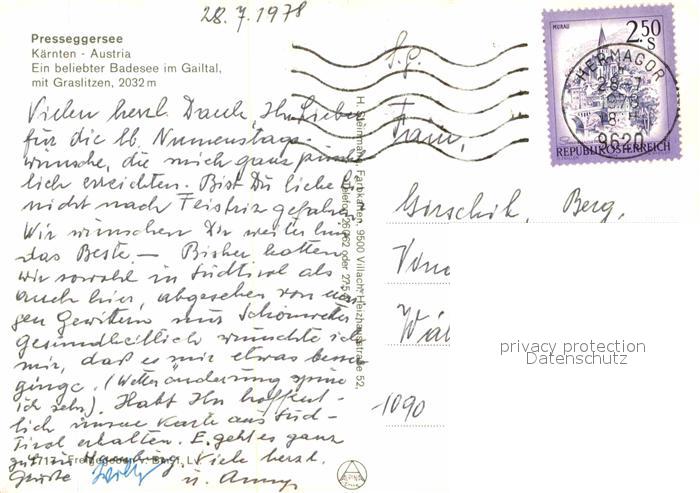 28.7.1978
Presseggersee
Kärnten - Austria
Ein beliebter Badesee im Gailtal,
mit Graslitzen, 2032 m
Vielen herzl. Dank, Ihr Lieben
für die lb. Namenstags-
wünsche, die mich ganz pünkt
lich erreichten. Bist Du liebe
nicht nach Feistriz gefahren
Wir wünschen Dir weiterhin
das Beste. — Bisher hatten
wir sowohl in Südtirol als
auch hier, abgesehen von
gen Gewittern nur Schönwetter
Gesundheitlich wünschte ich
mir, daß es mir etwas besser
ginge. (Wetteränderung spüre
ich sehr). Habt Ihr hoffent-
lich unsere Karte aus Süd-
Tirol erhalten. E. geht es ganz
gut. Viele herzl.
Grüße u. Anny
H. Steinmann, Farbkarten, 9500 Villach, Heizhausstraße 52,
Telefon 26062 oder 275
MURAU
2.50
S
REPUBLIK ÖSTERREICH
HERMAGOR
28.-7.
1978
18
9620
S.g.
Fam.
Berg,
1090
ALPINA
privacy protection
Datenschutz